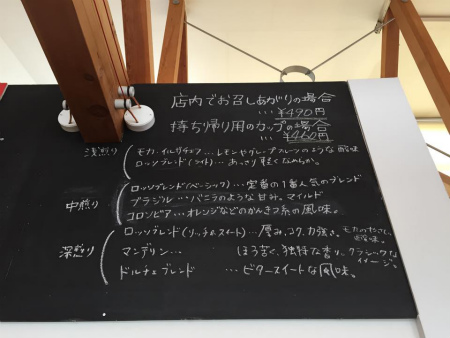 店内でお召しあがりの場合
… ¥490円
持ち帰り用のカップの場合
… ¥460円
浅煎り
モカ・イルガチェフ…レモンやグレープフルーツのような酸味
ロッソブレンド(ライト)…あっさり軽くなめらか。
中煎り
ロッソブレンド(ベーシック)…定番の1番人気のブレンド
ブラジル…バニラのような甘み。マイルド
コロンビア…オレンジなどのかんきつ系の風味。
深煎り
ロッソブレンド(リッチ&スイート)…厚み、コク、力強さ。
マンデリン…ほろ苦く、独特な香り、クラシックなイメージ。
ドルチェブレンド…ビタースイートな風味。